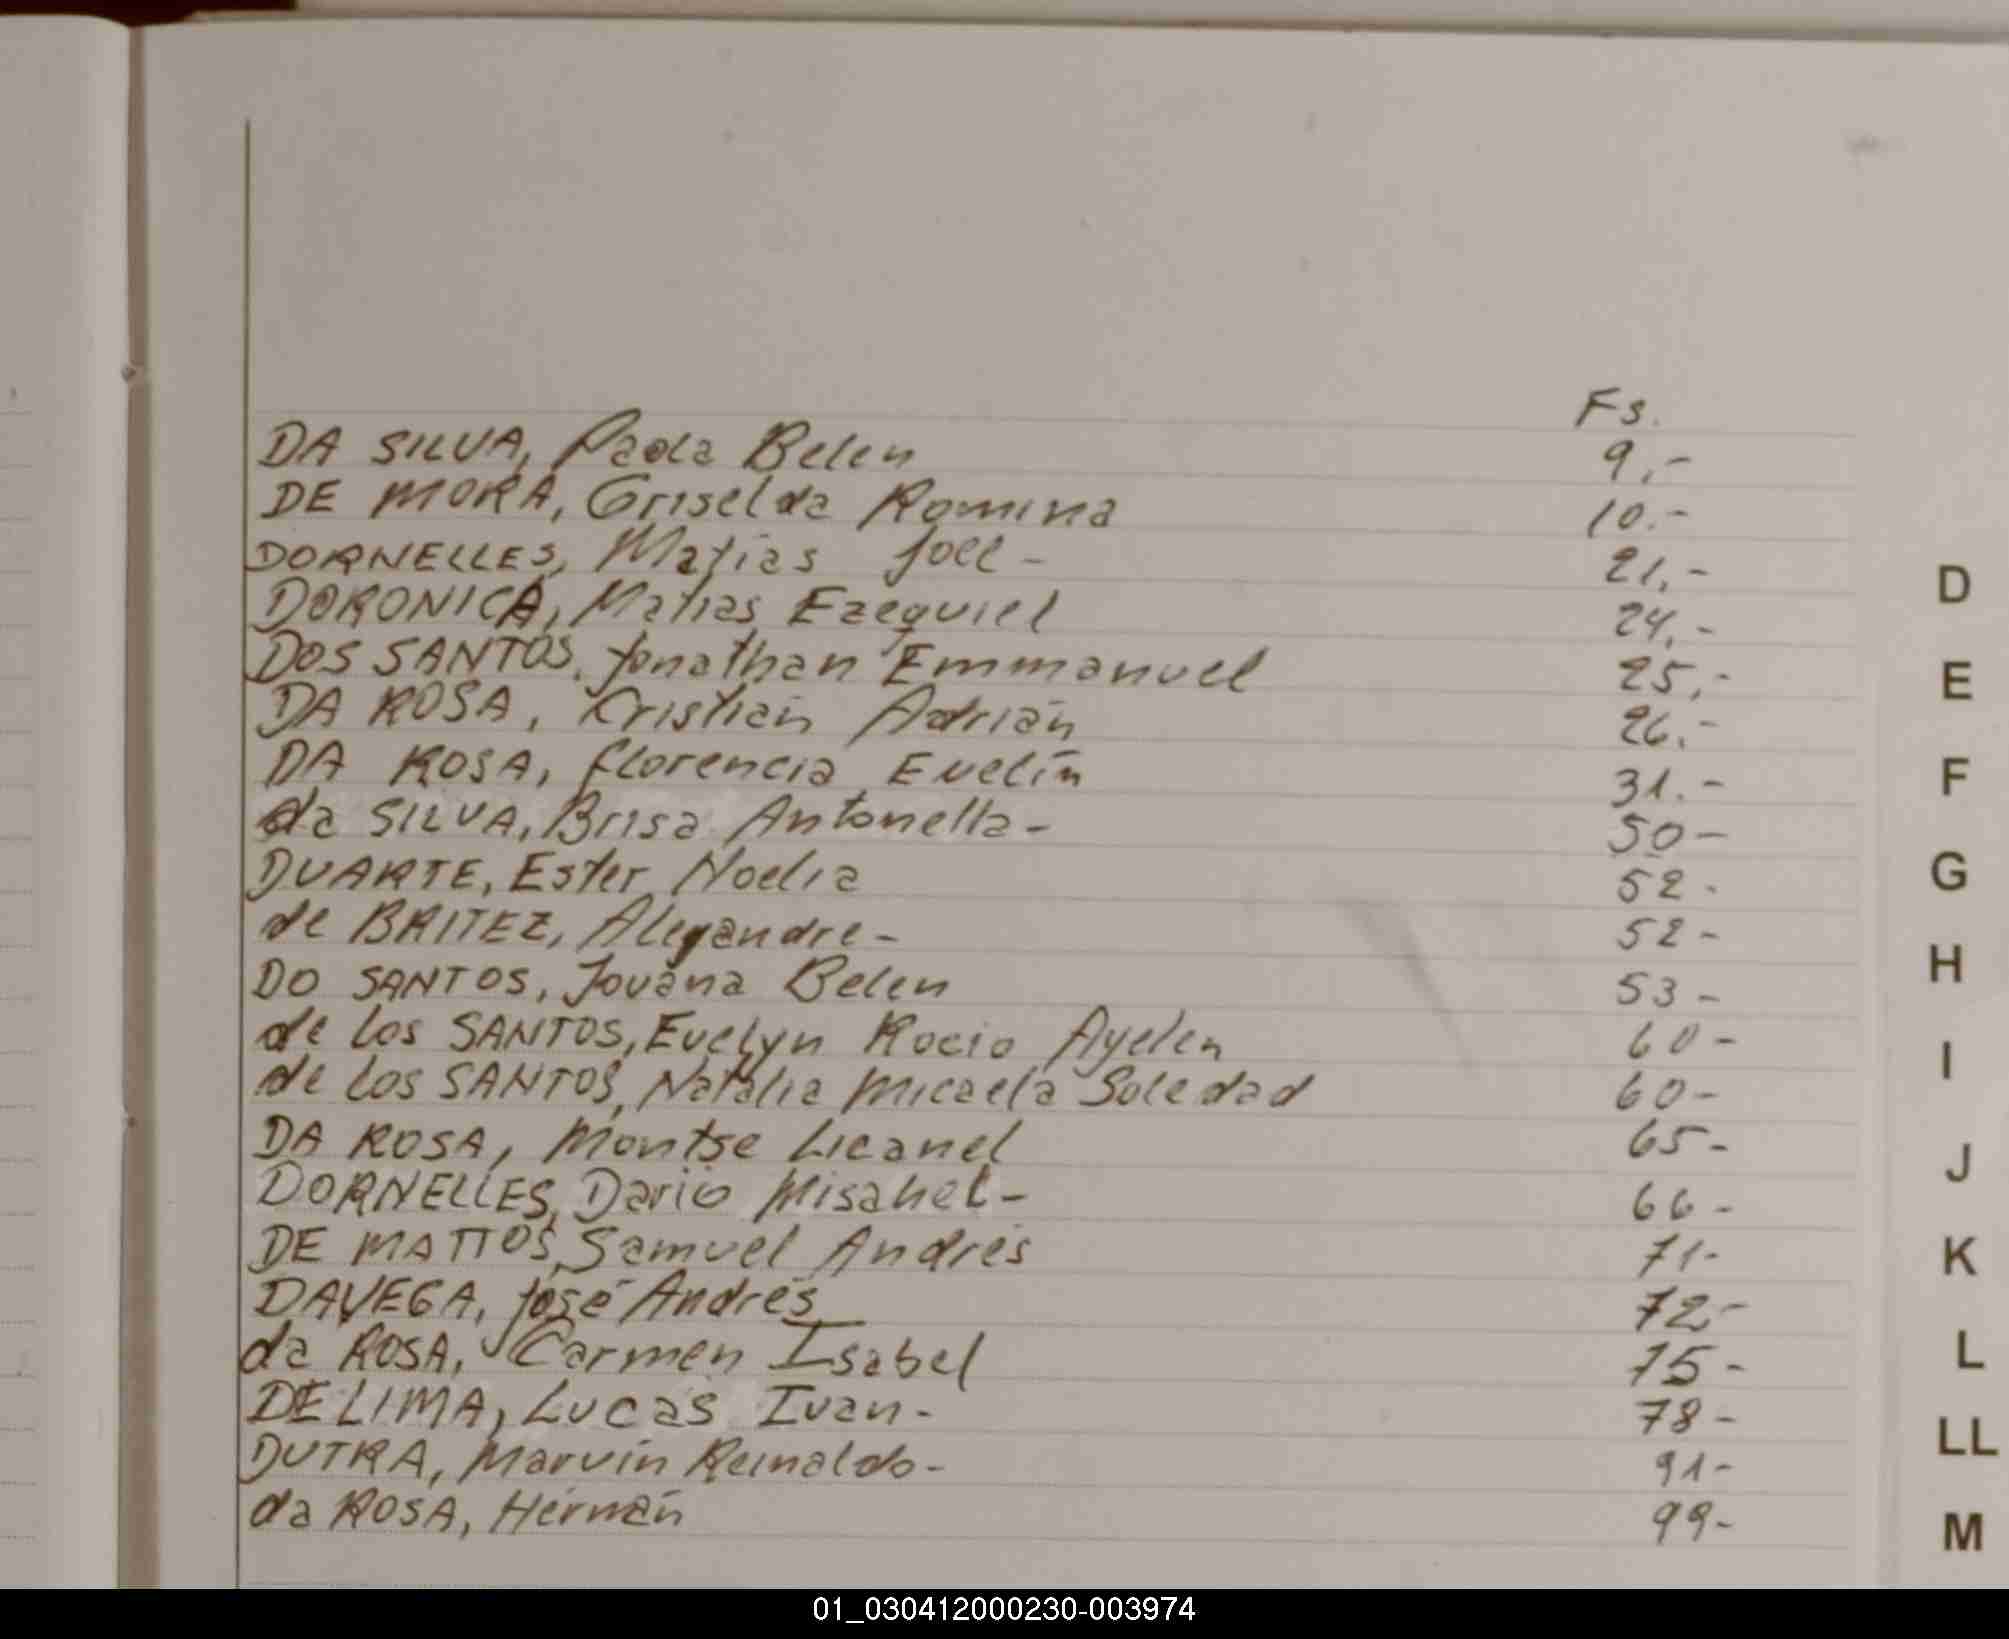 Fs.
DA SILVA, Paola Belen 9.-
DE MORA, Griselda Romina 10.-
DORNELLES, Matias Joel - 21.-
DORONICA, Matias Ezequiel 24.-
DOS SANTOS, Jonathan Emmanuel 25.-
DA ROSA, Cristian Adrián 26.-
DA ROSA, Florencia Evelin 31.-
da SILVA, Brisa Antonella - 50-
DUARTE, Ester Noelia 52-
de BRITEZ, Alejandre - 52-
DO SANTOS, Jovana Belen 53-
de los SANTOS, Evelyn Rocio Ayelen 60-
de los SANTOS, Natalia Micaela Soledad 60-
DA ROSA, Montse Licanel 65-
DORNELLES, Dario Misahel - 66-
DE MATTOS, Samuel Andrés 71-
DAVEGA, José Andrés 72-
da ROSA, Carmen Isabel 75-
DE LIMA, Lucas Ivan - 78-
DUTRA, Marvin Reinaldo - 91-
da ROSA, Hernán 99-
D
E
F
G
H
I
J
K
L
LL
M
01_030412000230-003974